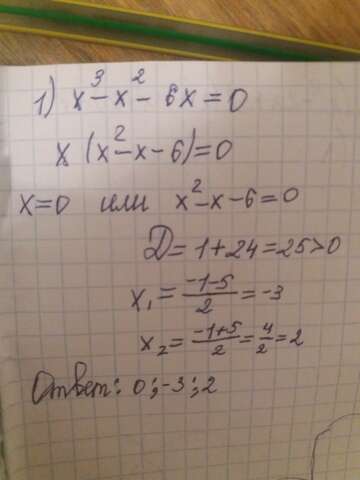 1) x³-x²-6x=0
x (x²-x-6)=0
x=0 или x²-x-6=0
D=1+24=25>0
x₁=\frac{-1-5}{2}=-3
x₂=\frac{-1+5}{2}=\frac{4}{2}=2
Ответ: 0;-3;2